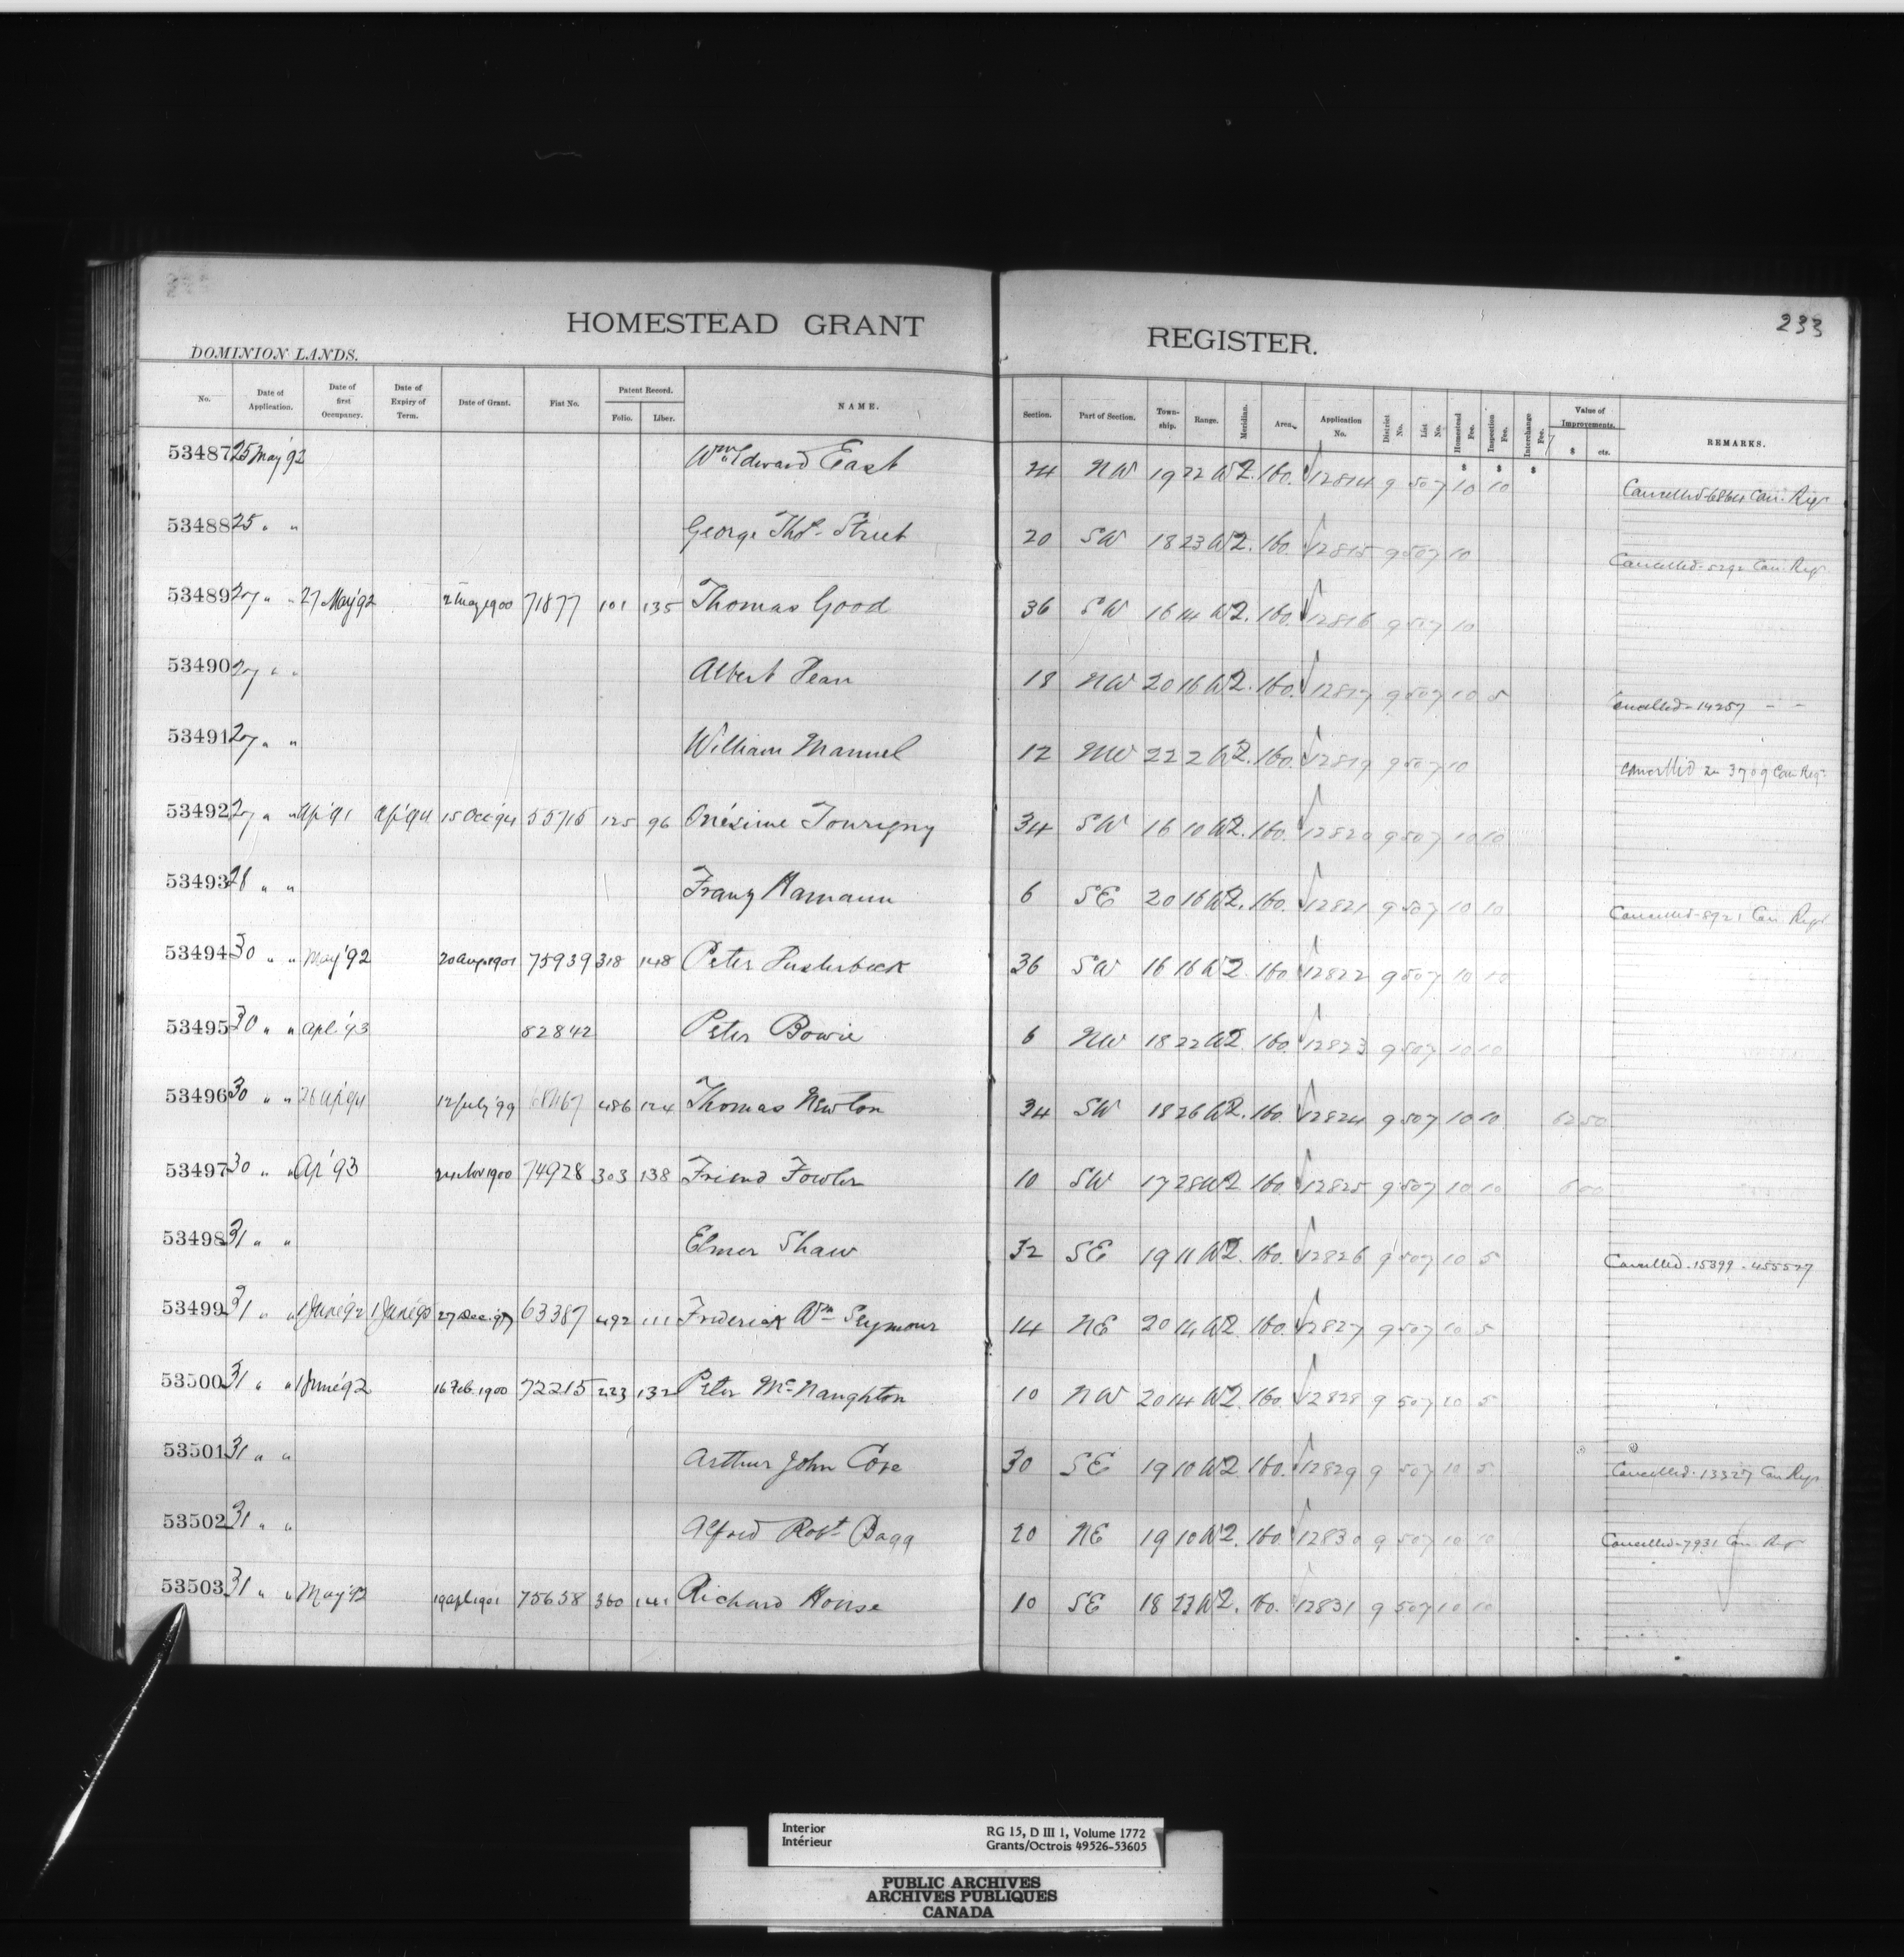 233
HOMESTEAD GRANT REGISTER.
DOMINION LANDS.
No. Date of Application. Date of first Occupancy. Date of Expiry of Term. Date of Grant. Fiat No. Patent Record. Folio. Liber. NAME. Section. Part of Section. Township. Range. Meridian. Area. Application No. District No. List No. Homestead Fee. Inspection Fee. Interchange Fee. Value of Improvements. $ cts. REMARKS.
53487 25 May '92 Wm Edward East 24 NW 19 22 W2. 160. 12814 9 507 10 10 Cancelled Can. Regr
53488 25 " " George Thos. Street 20 SW 18 23 W2. 160. 12815 9 507 10 Cancelled - 5292 Can. Regr
53489 27 " " 27 May '92 1900 71877 101 135 Thomas Good 36 SW 16 14 W2. 160. 12816 9 507 10
53490 27 " " Albert Hean 18 NW 20 16 W2. 160. 12817 9 507 10 5 Cancelled - 14257 - -
53491 27 " " William Manuel 12 NW 22 2 W2. 160. 12819 9 507 10 Cancelled 3709 Can Reg.
53492 27 " " Ap '91 Ap '94 15 Oct '94 55715 125 96 Onésime Tourigny 34 SW 16 10 W2. 160. 12820 9 507 10 10
53493 28 " " Franz Hamann 6 SE 20 16 W2. 160. 12821 9 507 10 10 Cancelled - 8921 Can Regr
53494 30 " " May '92 20 Aug 1901 75939 318 148 Peter 36 SW 16 16 W2 160 12822 9 507 10 10
53495 30 " " Apl '93 82842 Peter Bowie 6 NW 18 22 W2 160. 12823 9 507 10 10
53496 30 " " 26 Ap '94 12 July '99 68467 486 124 Thomas Newton 34 SW 18 26 W2. 160. 12824 9 507 10 10
53497 30 " " Ap '93 Nov 1900 74928 303 138 Friend Fowler 10 SW 17 28 W2 160. 12825 9 507 10 10
53498 31 " " Elmer Shaw 32 SE 19 11 W2. 160. 12826 9 507 10 5 Cancelled - 15399 - 455527
53499 31 " " 1 June '92 1 June '95 27 Dec. '97 63387 492 111 Frederick Wm Seymour 14 NE 20 14 W2 160. 12827 9 507 10 5
53500 31 " " 1 June '92 16 Feb. 1900 72215 223 132 Peter McNaughton 10 NW 20 14 W2. 160. 12828 9 507 10 5
53501 31 " " Arthur John Cope 30 SE 19 10 W2 160. 12829 9 507 10 5 Cancelled - 13327 Can Regr
53502 31 " " Alfred Robt. Bagg 20 NE 19 10 W2. 160. 12830 9 507 10 10 Cancelled - 7931 Can. Regr
53503 31 " " May '92 19 Apl 1901 75658 360 141 Richard House 10 SE 18 23 W2. 160. 12831 9 507 10 10
Interior RG 15, D III 1, Volume 1772
Intérieur Grants/Octrois 49526-53605
PUBLIC ARCHIVES
ARCHIVES PUBLIQUES
CANADA